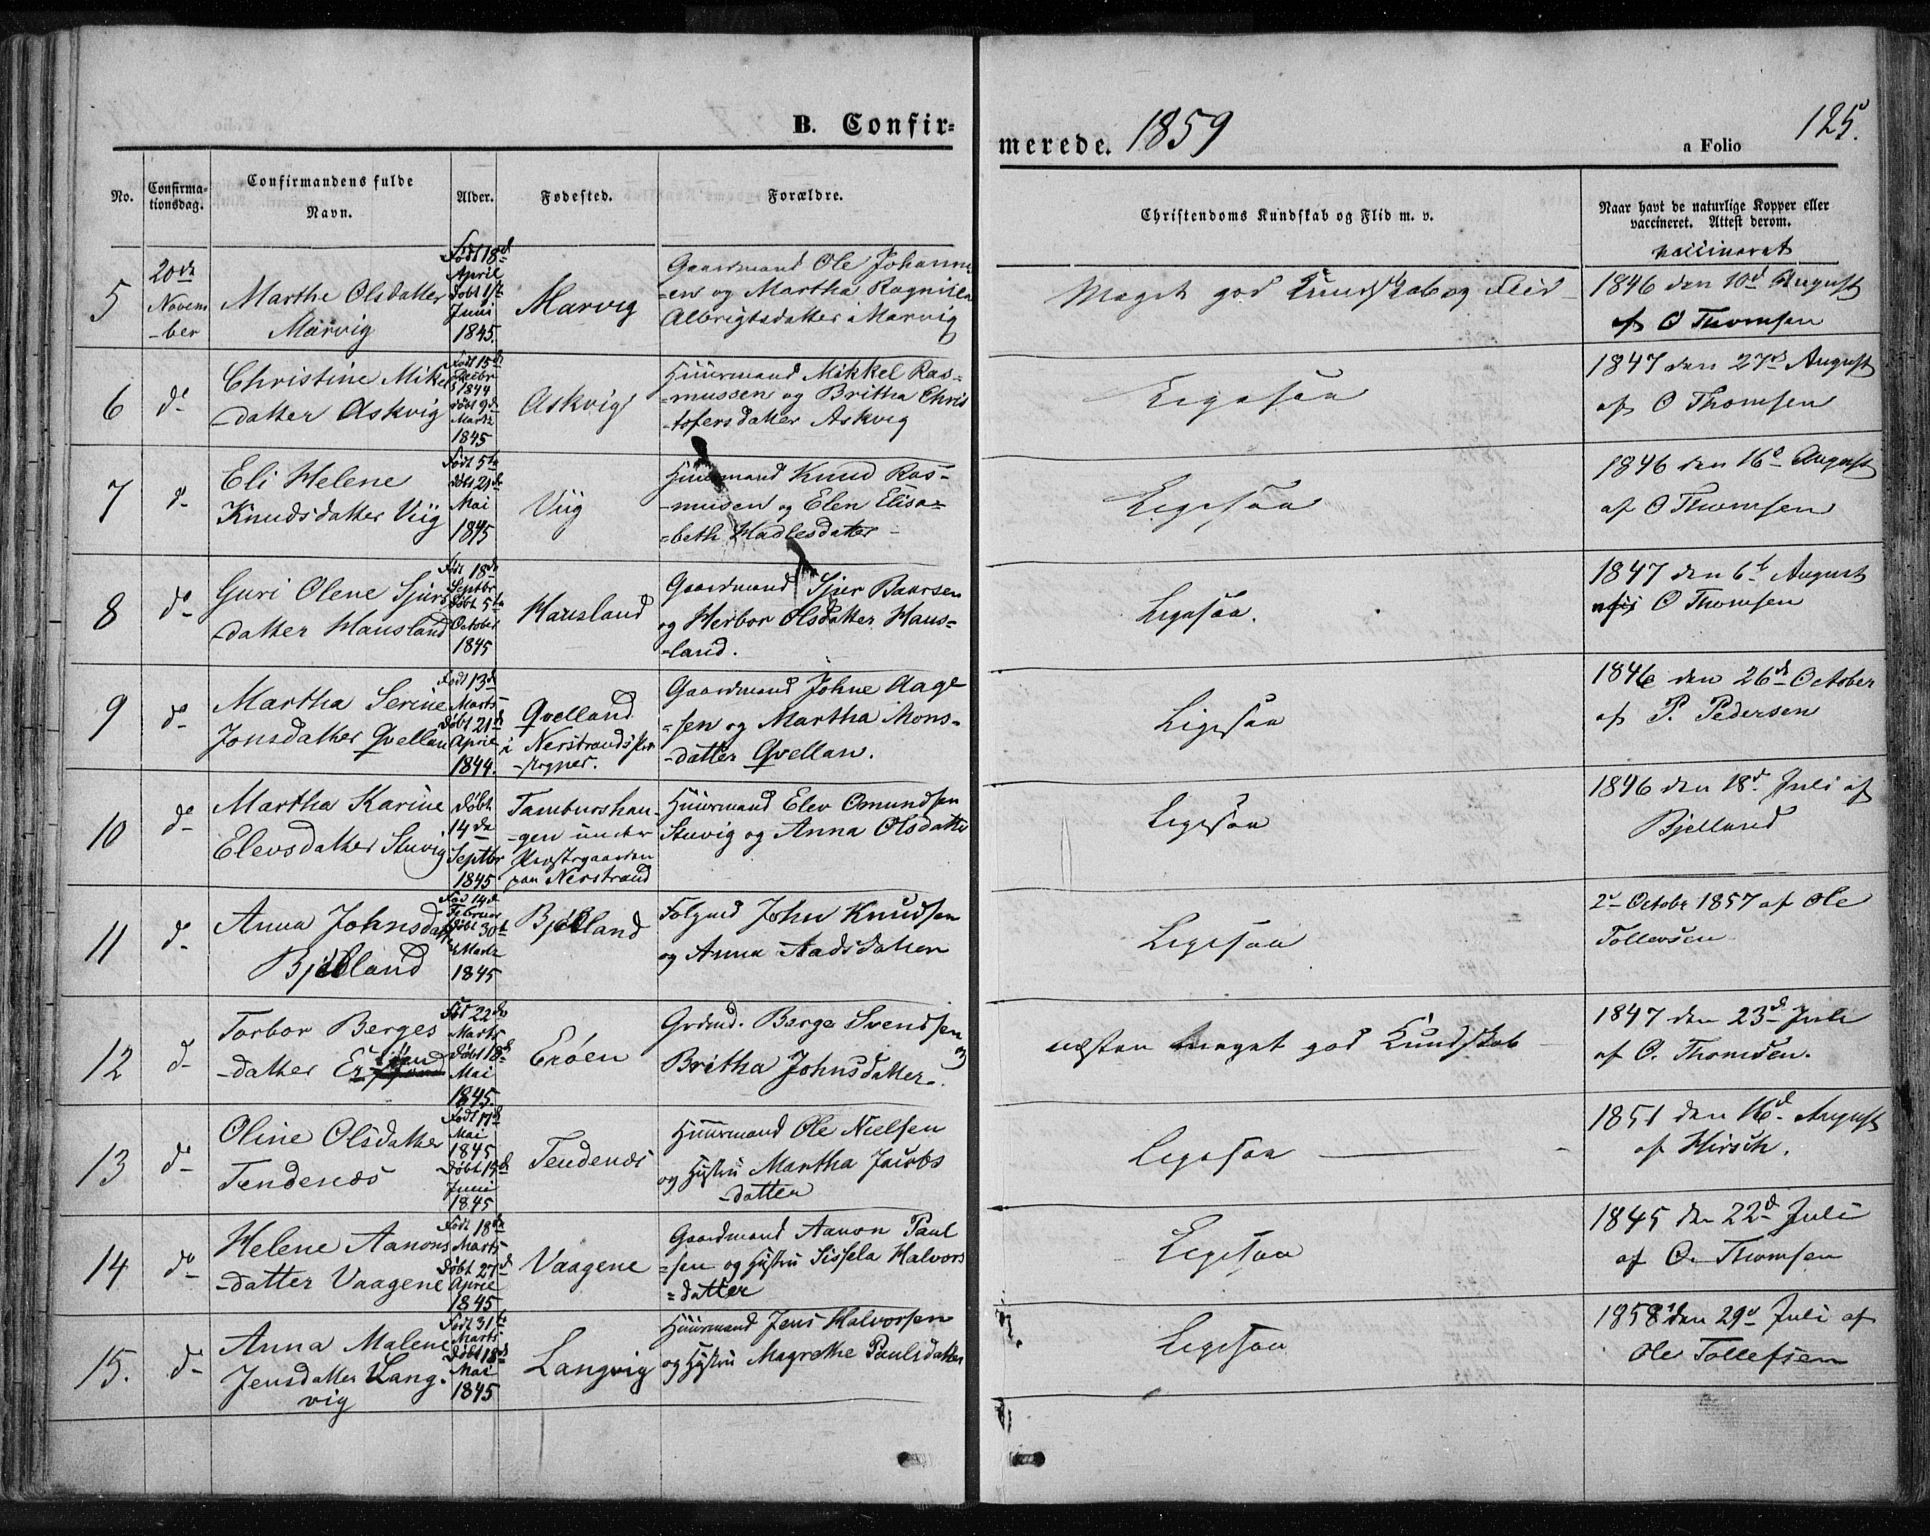 B. Confir=
merede. 1859
a Folio 125.
No.
Confirma-
tionsdag.
Confirmandens fulde
Navn.
Alder.
Fødested.
Forældre.
Christendoms Kundskab og Flid m. v.
Naar havt de naturlige Kopper eller
vaccineret. Attest derom.
vaccineret
5
20de
Novem
-ber
Marthe Olsdatter
Marvig
Født 18d
April
Døbt 1ste
Juni
1845.
Marvig
Gaardmand Ole Johann-
-en og Martha Ragnild
Albrigtsdatter i Marvig
Meget god Kundskab og Flid
1846 den 10d August
af O Thomsen
6
do
Christine Mikels
-datter Askvig
Født 15de
Decbr
1844
Døbt 9de
Marts
1845
Askvig
Huusmand Mikkel Ras=
-mussen og Britha Chris
-tofersdatter Askvig
Ligesaa
1847 den 27de August
af O Thomsen
7
do
Eli Helene
Knudsdatter Viig
Født 5te
Døbt 21de
Mai
1845
Viig
Huusmand Knud Ras-
-musen og Elen Elisa=
=beth Hadlesdatter -
Ligesaa
1846 den 16d August
af O Thomsen
8
do
Guri Olene Sjurs
datter Hausland
Født 18de
Septbr
Døbt 5te
October
1845
Hausland
Gaardmand Sjur Baarsen
og Herbor Olsdatter Haus=
=land.
Ligesaa.
1847 den 6te August
O Thomsen
9
do
Martha Serine
Jonsdatter Qvellan
Født 13de
Marts
Døbt 21de
April
1844.
Qvelland
i Nerstrands
Gaardmand Johne Aage
=sen og Martha Mons=
-datter Qvellan.
Ligesaa
1846 den 26de October
af P. Pedersen
10
do
Martha Karine
Elevsdatter Stuvig
Døbt
14de
Septbr
1845
Tamburshau-
-gen under
Præstegaarden
paa Nerstrand
Huusmand Elev Omundsen
Stuvig og Anna Olsdatter
Ligesaa
1846 den 18d Juli af
Bjelland
11
do
Anna Johnsdatt
Bjelland
Fød 14de
Februar
Døbt 30te
Marts
1845
Bjelland
Følgmd John Knudsen
og Anna Aadsdatter
Ligesaa
2d October 1857 af Ole
Tollevsen
12
do
Torbor Berges
-datter Erøen
Fød 22de
Marts
Døbt 18de
Mai
1845.
Erøen
Grdmd. Berge Svendsen
Britha Johnsdatter.
næsten meget god Kundskab
1847 den 23de Juli
af O. Thomsen.
13
do
Oline Olsdatter
Tendenæs
Født 17de
Mai
1845
Døbt 15de
Juni
1845
Tendenæs
Huusmand Ole Nielsen
og Hustru Martha Jacobs
-datter
Ligesaa
1851 den 16d August
af Hirsch.
14
do
Helene Aanons
-datter Vaagene
Født 18de
Marts
Døbt 27d
April
1845
Vaagene
Gaardmand Aanon Paul
=sen og Hustru Sissela Halvors
=datter
Ligesaa
1845 den 22d Juli
af O. Thomsen
15.
do
Anna Malene
Jensdatter Lang-
vig
Født 31te
Marts
Døbt 18de
Mai
1845
Langvig
Huusmand Jens Halvorsen
og Hustru Magrethe Paulsdatter
Ligesaa
1858 den 29d Juli af
Ole Tollefsen